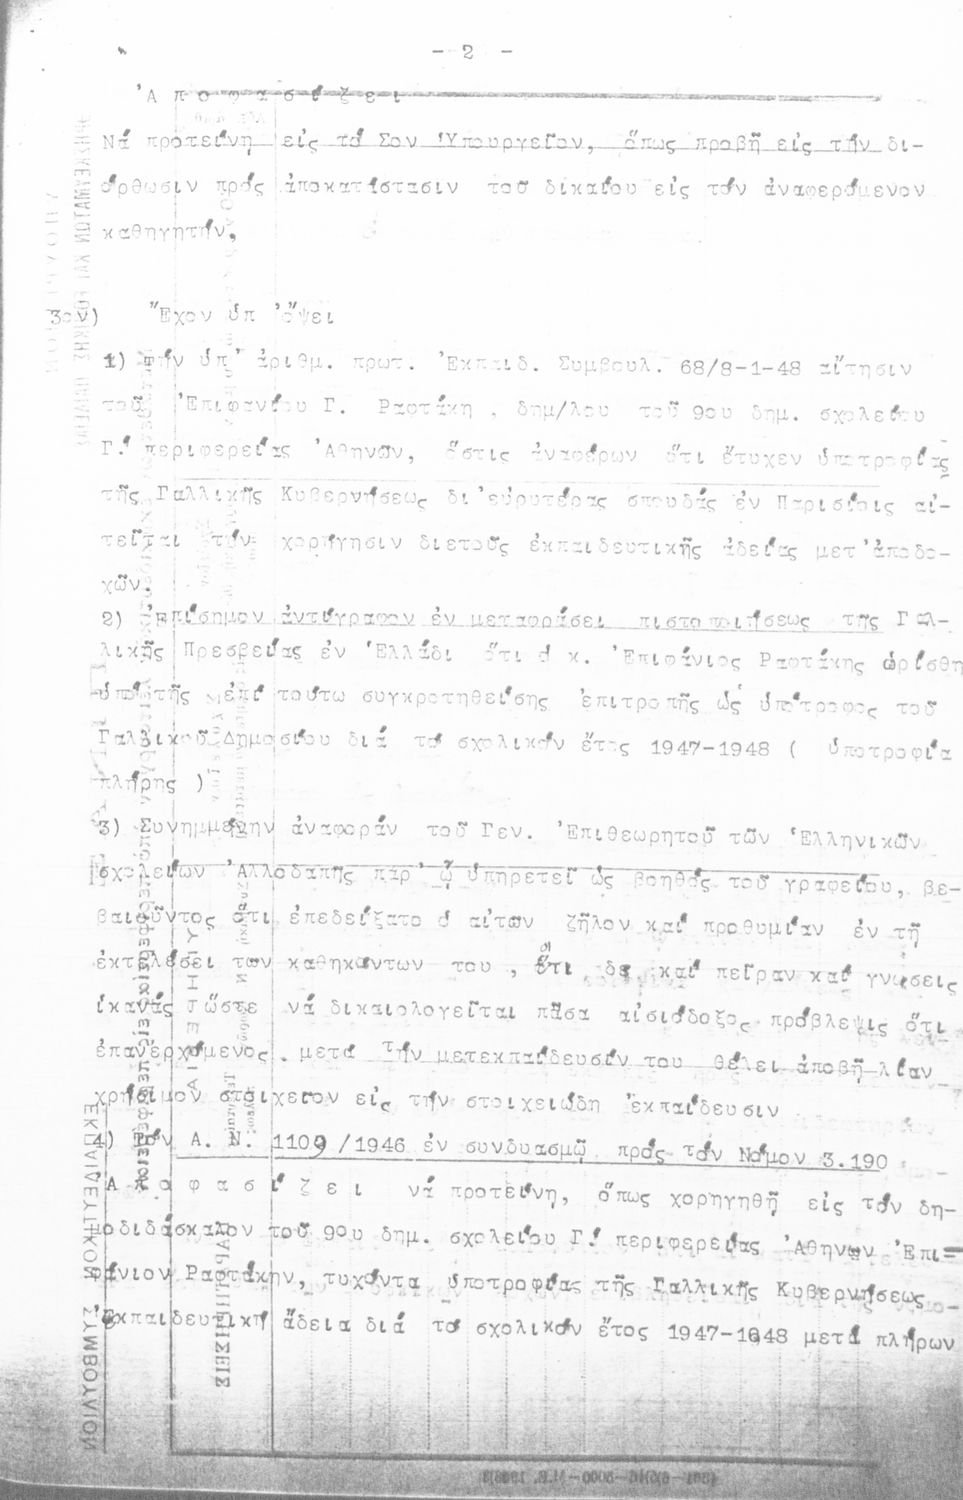 - 2 -
Ἀ π ο φ α σ ί ζ ε ι
Νά προτείνη εἰς τό Σον Ὑπουργεῖον, ὅπως προβῇ εἰς τήν δι-
όρθωσιν πρός ἀποκατάστασιν τοῦ δικαίου εἰς τόν ἀναφερόμενον
καθηγητήν,
3ον) Ἔχον ὑπ 'ὄψει
1) Τήν ὑπ' ἀριθμ. πρωτ. Ἐκπαιδ. Συμβουλ. 68/8-1-48 αἴτησιν
τοῦ Ἐπιφανίου Γ. Ραφτάκη , δημ/λου τοῦ 9ου δημ. σχολείου
Γ.' περιφερείας Ἀθηνῶν, ὅστις ἀναφέρων ὅτι ἔτυχεν ὑποτροφίας
τῆς Γαλλικῆς Κυβερνήσεως δι'εὐρυτέρας σπουδάς ἐν Παρισίοις αἰ-
τεῖται τήν χορήγησιν διετοῦς ἐκπαιδευτικῆς ἀδείας μετ'ἀποδο-
χῶν.
2) Ἐπίσημον ἀντίγραφον ἐν μεταφράσει πιστοποιήσεως τῆς Γαλ-
λικῆς Πρεσβείας ἐν Ἑλλάδι ὅτι ὁ κ. Ἐπιφάνιος Ραφτάκης ὡρίσθη
ὑπό τῆς ἐπί τούτω συγκροτηθείσης ἐπιτροπῆς ὡς ὑπότροφος τοῦ
Γαλλικοῦ Δημοσίου διά τό σχολικόν ἔτος 1947-1948 ( ὑποτροφία
πλήρης )
3) Συνημμένην ἀναφοράν τοῦ Γεν. Ἐπιθεωρητοῦ τῶν Ἑλληνικῶν
σχολείων Ἀλλοδαπῆς παρ' ᾧ ὑπηρετεῖ ὡς βοηθός τοῦ γραφείου, βε-
βαιοῦντος ὅτι ἐπεδείξατο ὁ αἰτῶν ζῆλον καί προθυμίαν ἐν τῇ
ἐκτελέσει τῶν καθηκόντων του , ὅτι δέ καί πεῖραν καί γνώσεις
ἱκανάς ὥστε νά δικαιολογεῖται πᾶσα αἰσιόδοξος πρόβλεψις ὅτι
ἐπανερχόμενος μετά τήν μετεκπαίδευσίν του θέλει ἀποβῇ λίαν
χρήσιμον στοιχεῖον εἰς τήν στοιχειώδη ἐκπαίδευσιν
4) Τόν Α. Ν. 1109/1946 ἐν συνδυασμῷ πρός τόν Νόμον 3.190
Ἀ π ο φ α σ ί ζ ε ι νά προτείνη, ὅπως χορηγηθῇ εἰς τόν δη-
μοδιδάσκαλον τοῦ 9ου δημ. σχολείου Γ.' περιφερείας Ἀθηνῶν Ἐπι=
φάνιον Ραφτάκην, τυχόντα ὑποτροφίας τῆς Γαλλικῆς Κυβερνήσεως
Ἐκπαιδευτική ἄδεια διά τό σχολικόν ἔτος 1947-1948 μετά πλήρων
ΕΚΠΑΙΔΕΥΤΙΚΟΝ ΣΥΜΒΟΥΛΙΟΝ